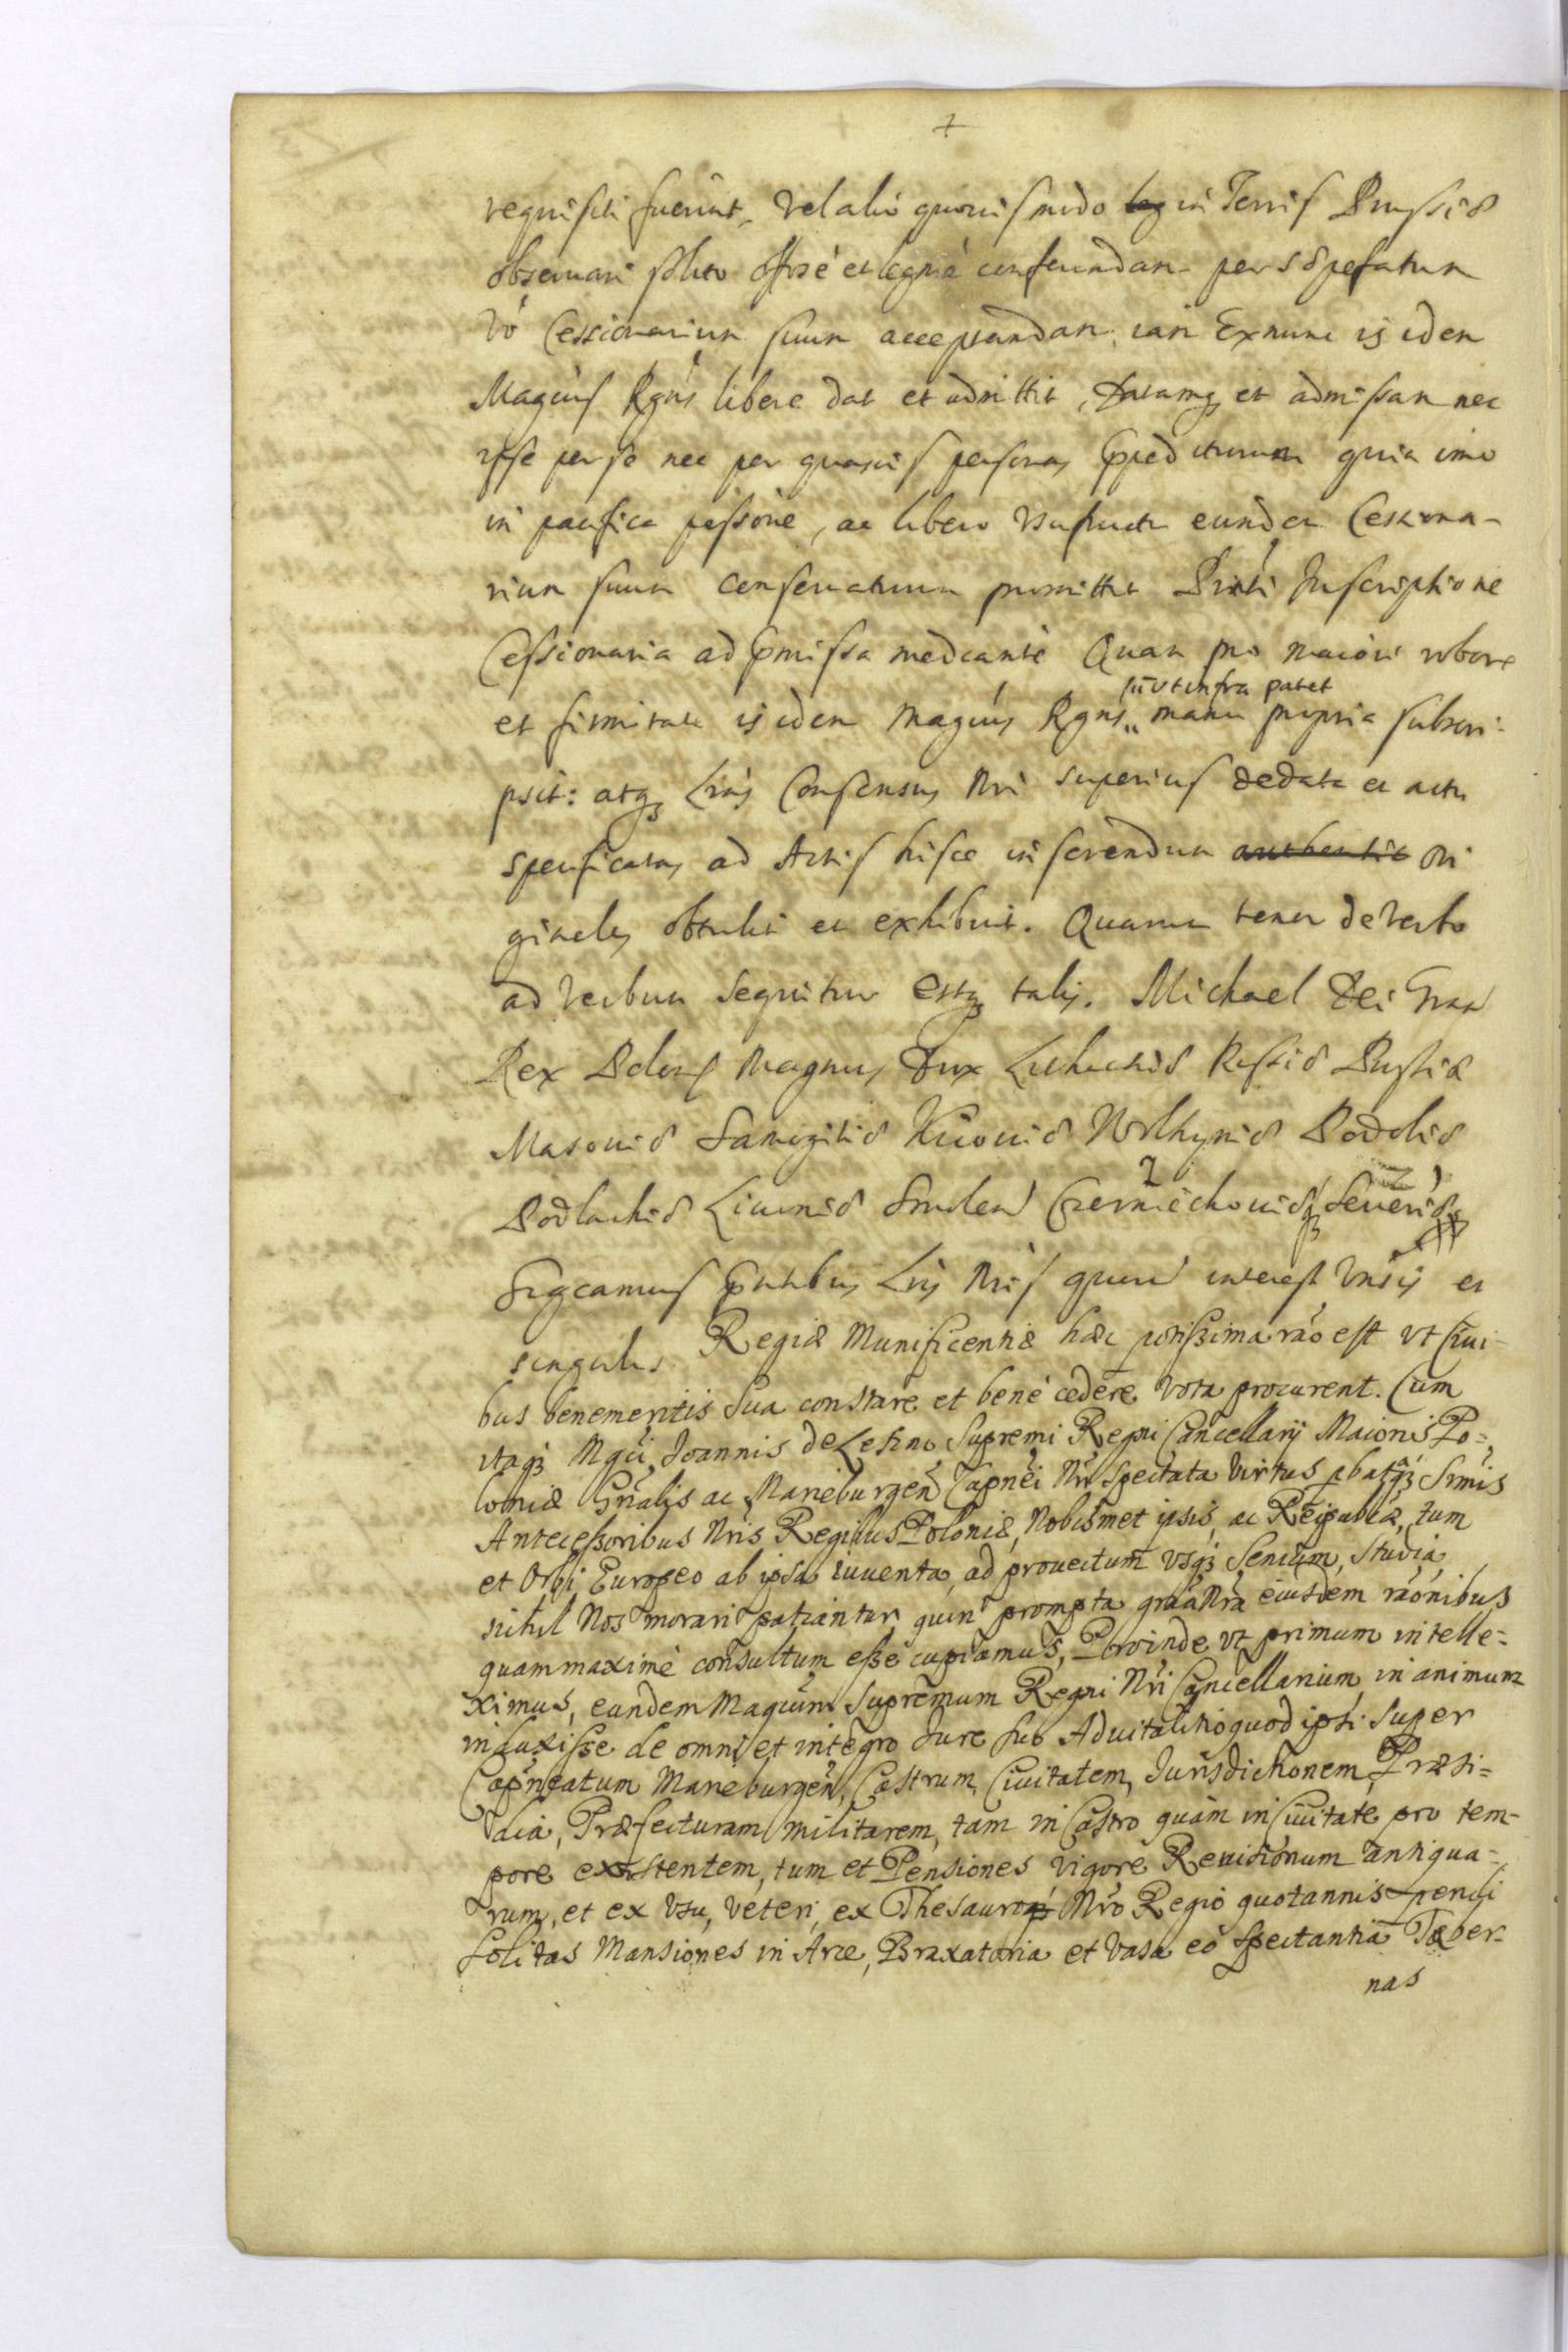 requisiti fuerint, vel alio quouis modo leg in Terris Prussiæ
obseruari solito offrē et legtmē conferendam per sæpefatum
vō Cessionarium suum acceptandam iam Exnunc is idem
Magcus Rgns libere dat et admittit, Datamq; et admissam nec
ipse per se nec per quasuis personas Impediturum quin imo
in pacifica possione, ac libero Usufructu eundem Cessiona-
rium suum conseruaturum promittit Prnti Inscriptione
Cessionaria ad præmissa mediante Quam pro maiori robore
et firmitate is idem Magcus Rgns manu propria subscri-
sicut infra patet
psit: atq; Lras Consensus Nri superius de data et actu
specificatas ad Actis hisce inserendum authentic ori
ginales obtulit et exhibuit. Quarum tenor de verbo
ad verbum sequitur estq; talis. Michael Dei Gratia
Rex Polon Magnus Dux Lithuaniæ Russiæ Prussiæ
Masouiæ Samogitiæ Kiiouiæ Volhyniæ Podoliæ
Podlachiæ Liuoniæ Smolen Czerniechouiæq; Seueriæ
Sigcamus Prntibus Lris Nris quorum interest Vnsis et
singulis. Regiæ Munificentiæ hæc potissima rāo est vt Ciui-
bus benemeritis sua constare et benè cedere vota procurent. Cum
itaq; Mgci Joannis de Leszno Supremi Regni Cancellarij Maioris Po=
loniæ Gnālis ac Marieburgen Capnei Nri spectata virtus pbataq; Srmis
Antecessoribus Nris Regibus Poloniæ, Nobismet ipsis, ac Reipublæ, tum
et Orbi Europeo ab ipsa iuuenta, ad prouectum vsq; Senium, studia,
nihil Nos morari patiantur, quin prompta grāa Nra eiusdem rāonibus
quam maximè consultum esse cupiamus, Proinde vt primum intelle=
ximus, eundem Magcum Supremum Regni Nri Cancellarium, in animum
induxisse de omni et integro Jure suo Aduitalitio quod ipsi super
Capneatum Marieburgen, Castrum, Ciuitatem, Jurisdictionem, Præsi=
dia, Præfecturam militarem, tam in Castro quàm in Ciuitate pro tem-
pore existentem, tum et Pensiones vigore Reuisionum antiqua=
rum, et ex vsu, veteri, ex Thesauro Nro Regio quotannis pendi
solitas Mansiones in Arce, Braxatoria et vasa eò spectantia Taber-
nas